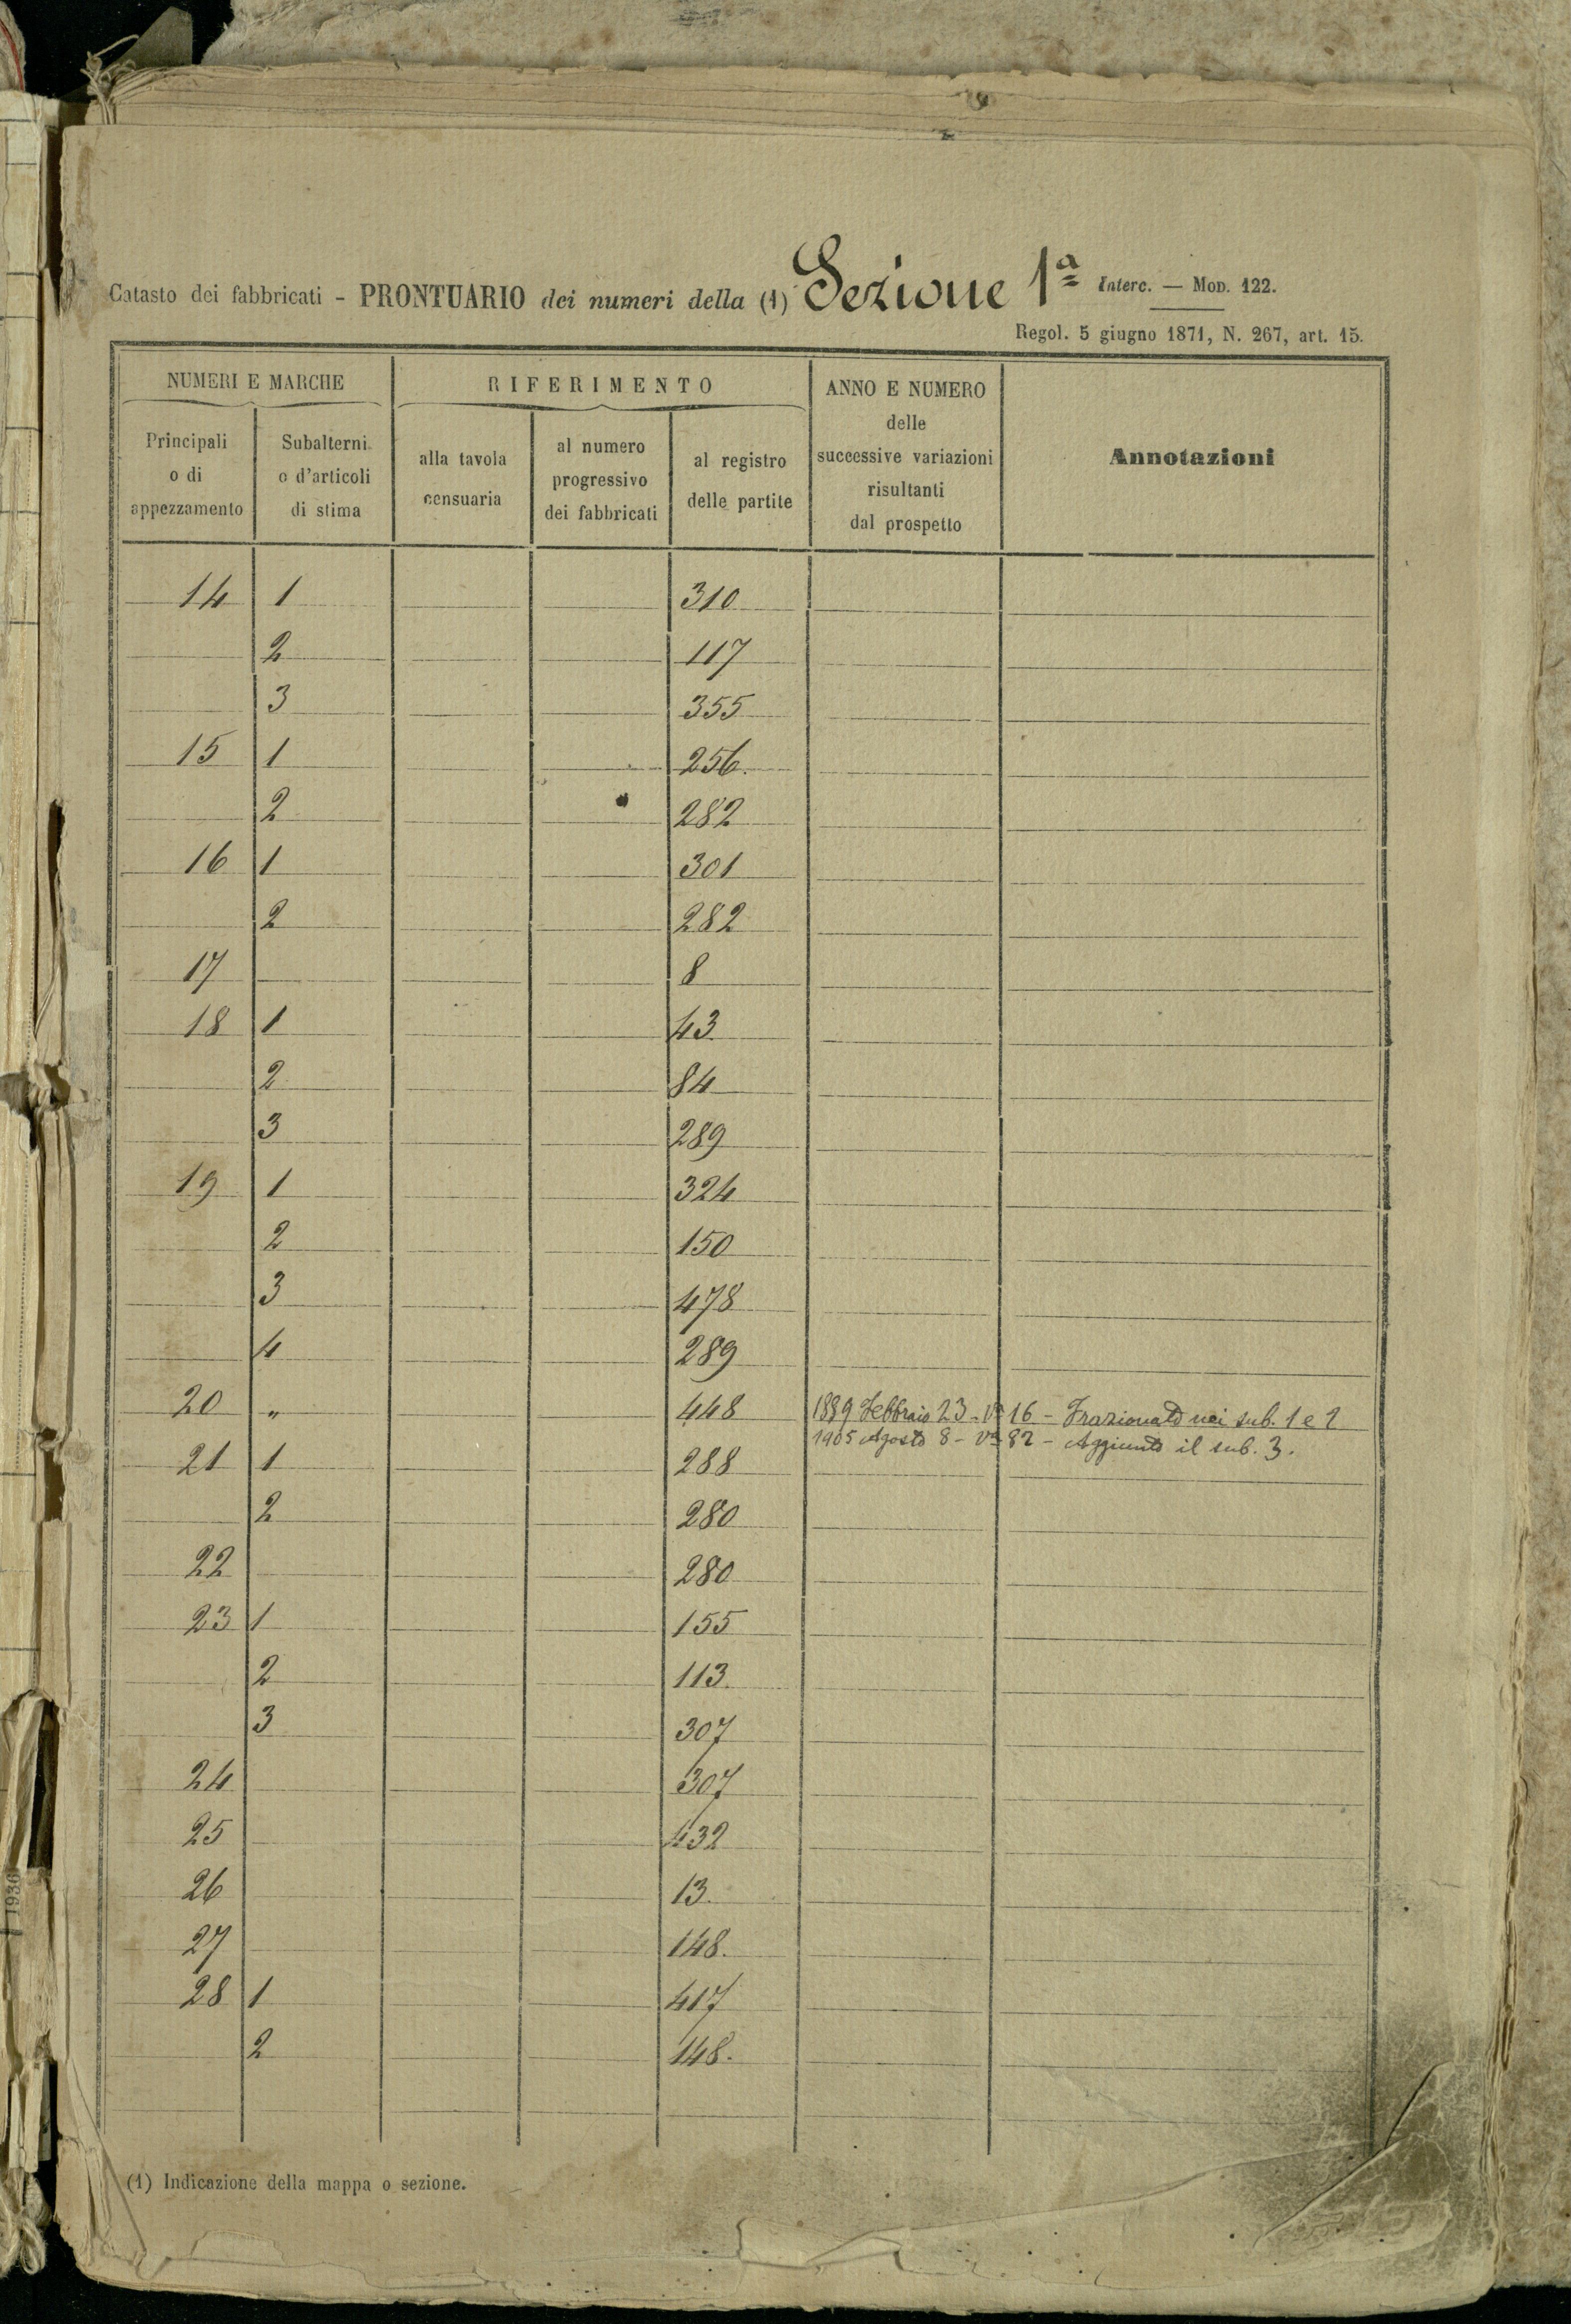 Catasto dei fabbricati - PRONTUARIO dei numeri della (1) Sezione 1ª Interc. — Mod. 122.
Regol. 5 giugno 1871, N. 267, art. 15.
NUMERI E MARCHE
Principali o di appezzamento
Subalterni o d'articoli di stima
RIFERIMENTO
alla tavola censuaria
al numero progressivo dei fabbricati
al registro delle partite
ANNO E NUMERO delle successive variazioni risultanti dal prospetto
Annotazioni
14 1 310
2 117
3 355
15 1 256.
2 282
16 1 301
2 282
17 8
18 1 43
2 84
3 289
19 1 324
2 150
3 478
4 289
20 " 448 1889 Febbraio 23 - Vª 16 - Frazionato nei sub. 1 e 2
1905 Agosto 8 - Vª 82 - Aggiunto il sub. 3.
21 1 288
2 280
22 280
23 1 155
2 113.
3 307
24 307
25 432
26 13.
27 148.
28 1 417
2 148.
(1) Indicazione della mappa o sezione.
1936